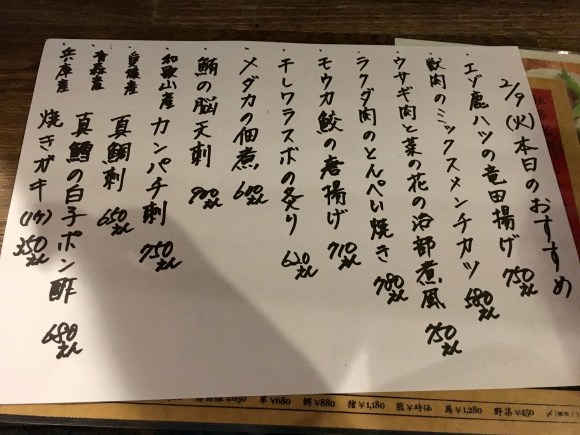 2/9(火)本日のおすすめ
・エゾ鹿ハツの竜田揚げ 750えん
・獣肉のミックスメンチカツ 580えん
・ウサギ肉と菜の花の治部煮風 750えん
・ラクダ肉のとんぺい焼き 780えん
・モウカ鮫の唐揚げ 710えん
・干しワラスボの炙り 620えん
・メダカの佃煮 600えん
・鮪の脳天刺 900えん
・和歌山産 カンパチ刺 750えん
・愛媛産 真鯛刺 650えん
・青森産 真鱈の白子ポン酢 680えん
・兵庫産 焼きガキ(1ケ) 350えん
¥650 羊¥680 鰐¥880 猪¥1,180 熊¥時価 馬¥1,280 野菜¥450